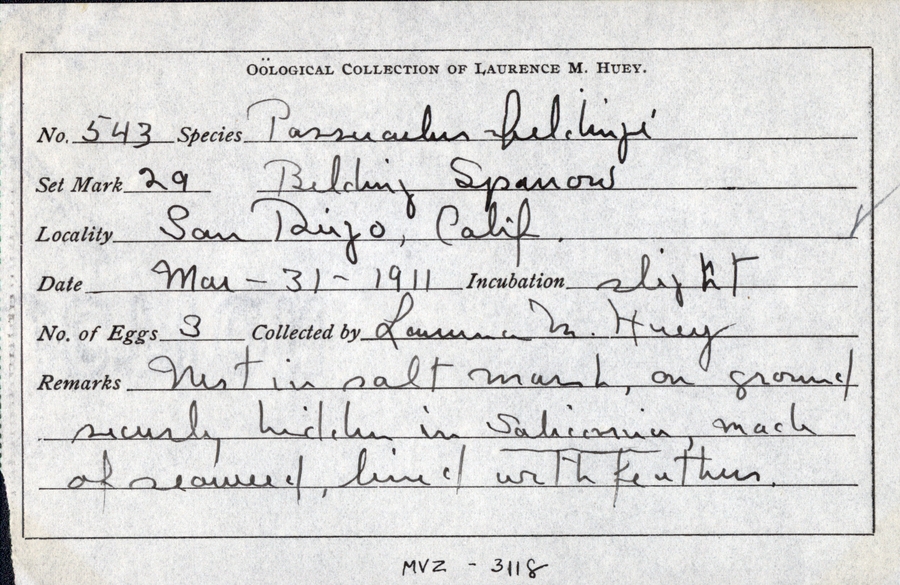 OÖLOGICAL COLLECTION OF LAURENCE M. HUEY.
No. 543 Species Passerculus beldingi
Set Mark 29 Belding Sparrow
Locality San Diego, Calif.
Date Mar - 31 - 1911 Incubation slight
No. of Eggs 3 Collected by Laurence M. Huey
Remarks Nest in salt marsh, on ground
securely hidden in Salicornia, made
of seaweed, lined with feathers.
MVZ - 3118